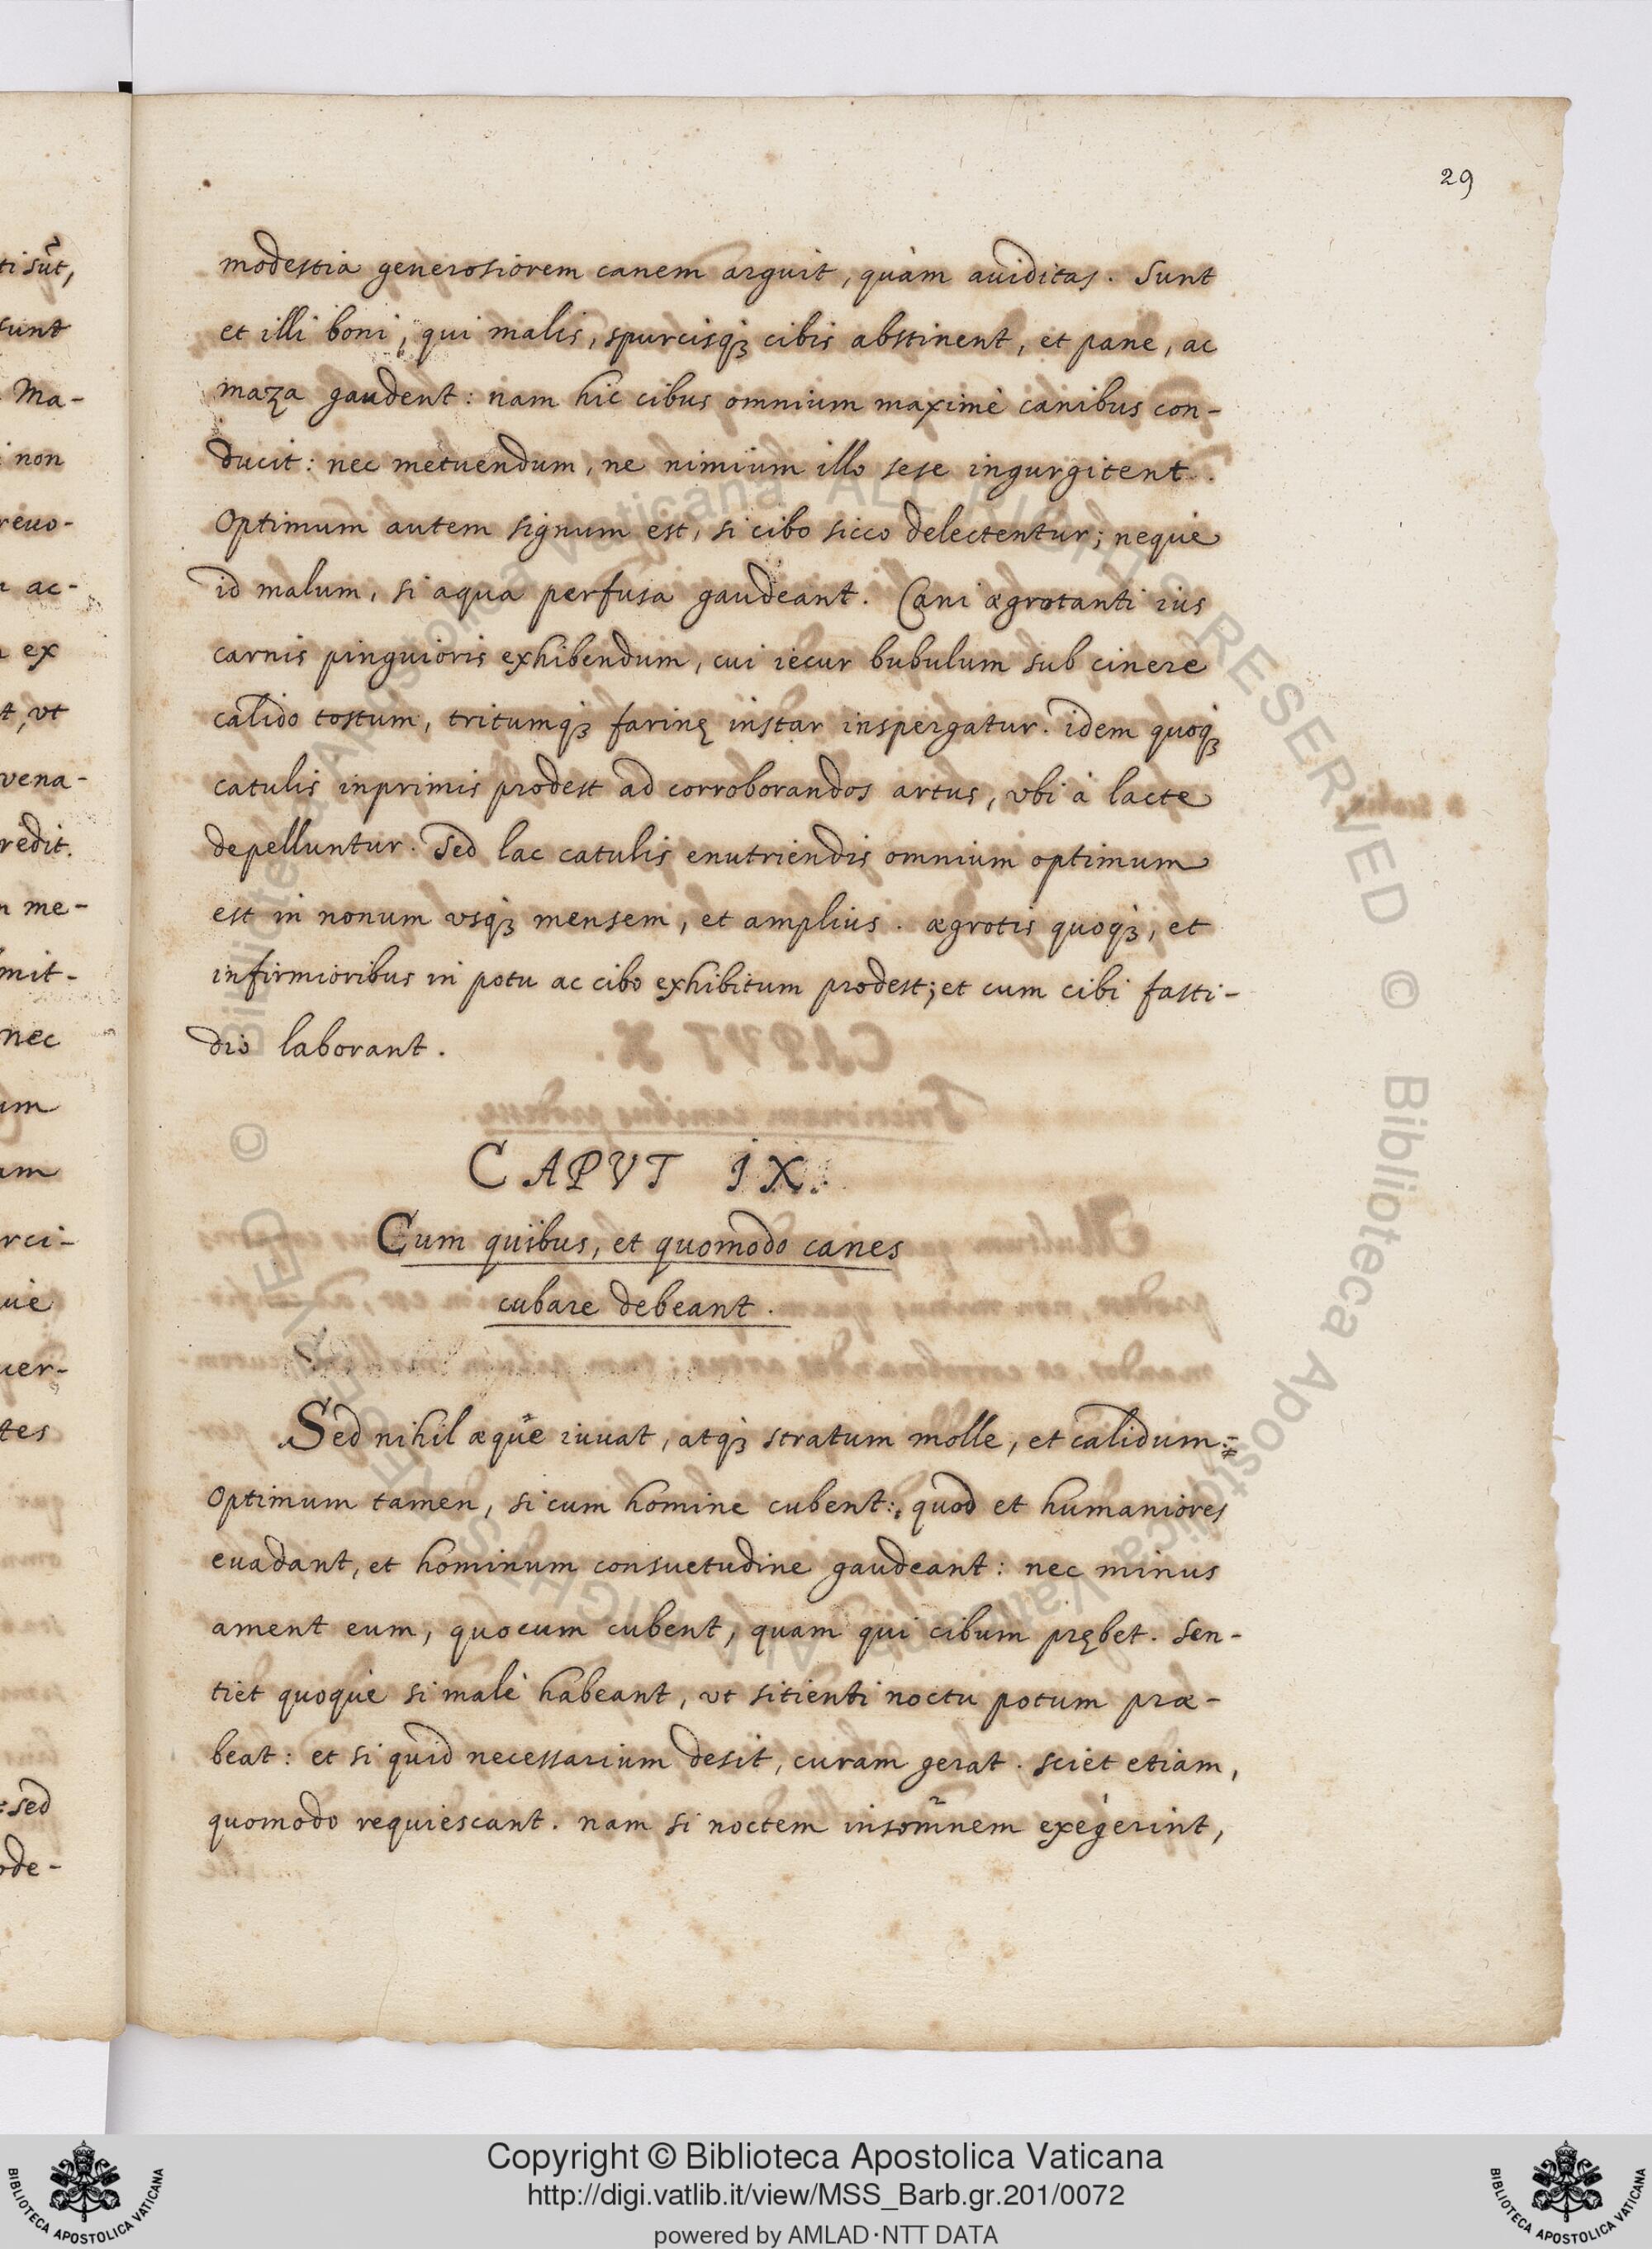 29
modestia generosiorem canem arguit, quàm auiditas. Sunt
et illi boni, qui malis, spurcisq́ꝫ cibis abstinent, et pane, ac
maza gaudent: nam hic cibus omnium maximè canibus con-
ducit: nec metuendum, ne nimium illo sese ingurgitent.
Optimum autem signum est, si cibo sicco delectentur; neque
id malum, si aqua perfusa gaudeant. Cani ægrotanti ius
carnis pinguioris exhibendum, cui iecur bubulum sub cinere
calido tostum, tritumq́ꝫ farinę instar inspergatur. idem quoq́ꝫ
catulis inprimis prodest ad corroborandos artus, vbi à lacte
depelluntur. Sed lac catulis enutriendis omnium optimum
est in nonum vsq́ꝫ mensem, et amplius. ægrotis quoq́ꝫ, et
infirmioribus in potu ac cibo exhibitum prodest; et cum cibi fasti-
dio laborant.
CAPVT IX.
Cum quibus, et quomodo canes
cubare debeant.
Sed nihil æquè iuuat, atq́ꝫ stratum molle, et calidum:
Optimum tamen, si cum homine cubent: quod et humaniores
euadant, et hominum consuetudine gaudeant: nec minus
ament eum, quocum cubent, quam qui cibum prębet. Sen-
tiet quoque si malè habeant, vt sitienti noctu potum præ-
beat: et si quid necessarium desit, curam gerat. sciet etiam,
quomodo requiescant. nam si noctem insomnem exegerint,
ti sūt,
sunt
Ma-
non
reuo-
ac-
ex
t, vt
vena-
redit.
me-
mit-
nec
um
am
rci-
uè
uer-
tes
: sed
ode-
Copyright © Biblioteca Apostolica Vaticana
http://digi.vatlib.it/view/MSS_Barb.gr.201/0072
powered by AMLAD·NTT DATA
BIBLIOTECA APOSTOLICA VATICANA
BIBLIOTECA APOSTOLICA VATICANA